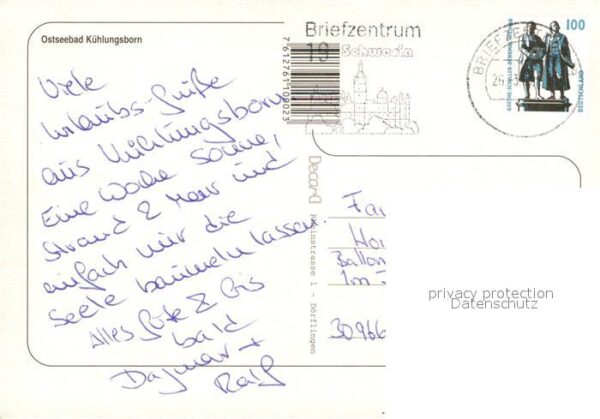 Ostseebad Kühlungsborn
Viele
Urlaubs-Grüße
aus Kühlungsborn.
Eine Woche Sonne,
Strand & Meer und
einfach mir die
Seele baumeln lassen.
Alles Gute & bis
bald
Dagmar +
Ralf
Briefzentrum
19
Schwerin
7612761100023
BRIEFZE
100
GOETHE-SCHILLER-DENKMAL WEIMAR
DEUTSCHLAND
Decard
Rheinstrasse 1 - Dörflingen
Fa
Ho
Ballo
Im
30966
privacy protection
Datenschutz